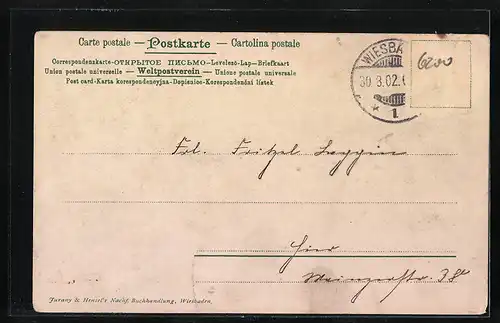 Carte postale — Postkarte — Cartolina postale
Correspondenzkarte-ОТКРЫТОЕ ПИСЬМО-Levelező-Lap-Briefkaart
Union postale universelle — Weltpostverein — Unione postale universale
Post card-Karta korespondencyjna-Dopisnice-Korespondenční lístek
WIESBA
30.3.02.
* 1
6200
Frl. Fritzel
Hier
38
Jurany & Hensel's Nachf. Buchhandlung, Wiesbaden.